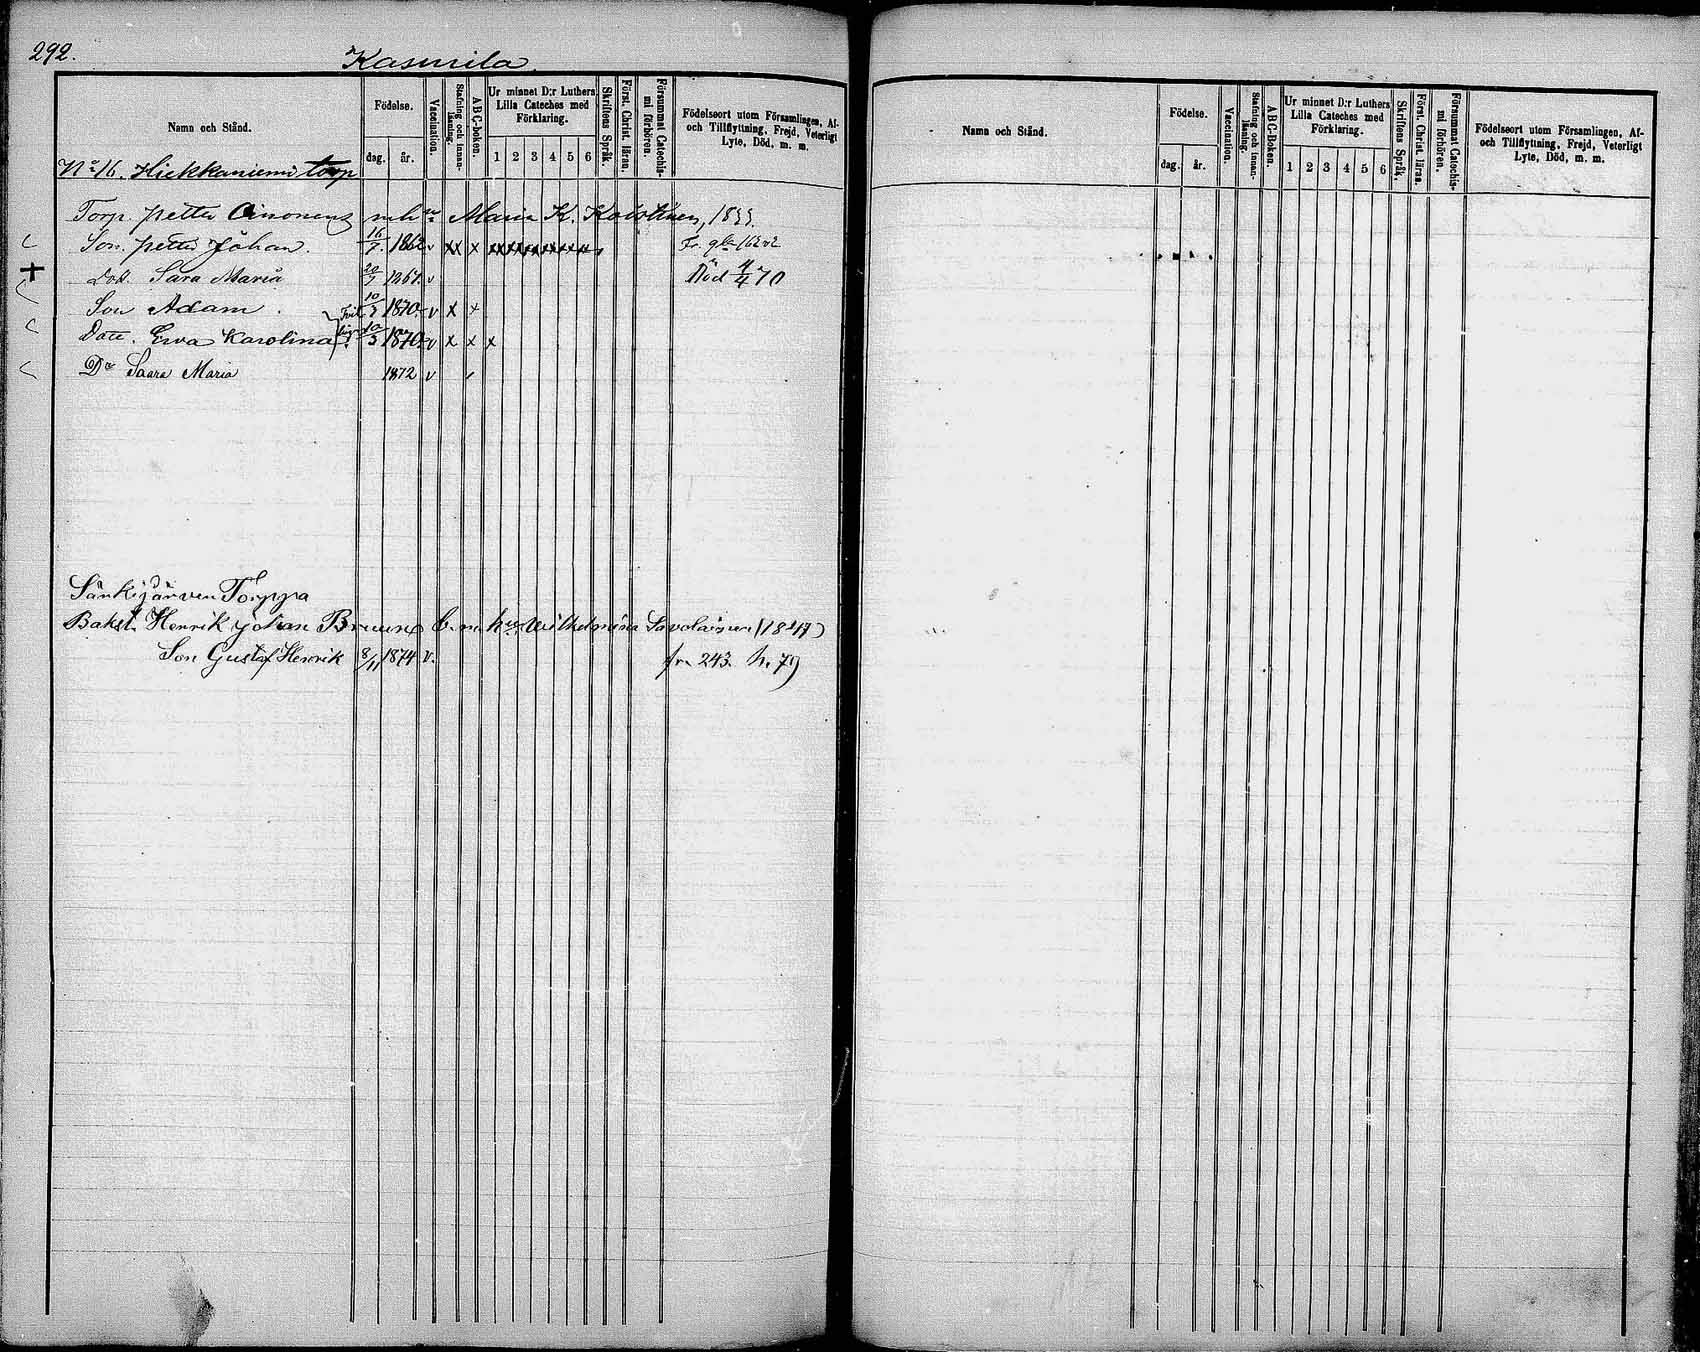 292.
Kasurila
Namn och Stånd.
Födelse.
dag. år.
Vaccination.
Stafning och innanläsning.
A B C-boken.
Ur minnet D:r Luthers Lilla Cateches med Förklaring.
1 2 3 4 5 6
Skriftens Språk.
Först. Christ. läran.
Försummat Catechismi förhören.
Födelseort utom Församlingen, Af- och Tillflyttning, Frejd, Veterligt Lyte, Död, m. m.
No 16. Hiekkaniemi torp
Torp. Petter Ainonens m. h. Maria K. Koistinen, 1833.
Son. Petter Johan. 16/7. 1862 v xx x Fr. gla 162
Dod. Sara Maria 20/7 1867. v Död 4/4 70
Son Adam. 10/3 1870 v x x
Dott. Ewa Karolina 10/3 1870 v x x x
Dr Saara Maria 1872 v
Särkijärven Torppa
Bakst. Henrik Johan Bruun b. m. hu Wilhelmina Savolainen (1847)
Son Gustaf Henrik 8/11 1874 v. fr. 243. h. 79
Namn och Stånd.
Födelse.
dag. år.
Vaccination.
Stafning och innanläsning.
A B C-boken.
Ur minnet D:r Luthers Lilla Cateches med Förklaring.
1 2 3 4 5 6
Skriftens Språk.
Först. Christ. läran.
Försummat Catechismi förhören.
Födelseort utom Församlingen, Af- och Tillflyttning, Frejd, Veterligt Lyte, Död, m. m.